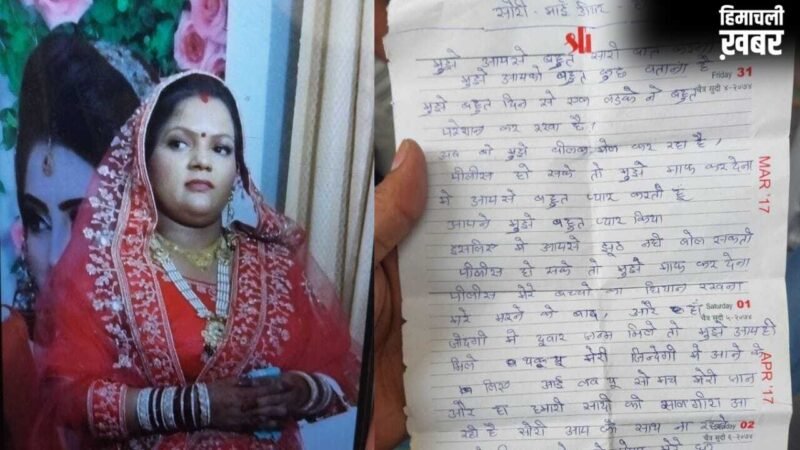 हिमाचली
ख़बर
सोरी - माई डीयर -
मुझे आपसे बहुत सारी बात करना
मुझे आपको बहुत कुछ बताना है
Friday 31
चैत्र सुदी ४-२०७४
मुझे बहुत दिन से एक लडके ने बहुत
परेशान कर रखा है,
अब वो मुझे मेल कर रहा है,
पीलीस हो सके तो मुझे माफ कर देना
मे आपसे बहुत प्यार करती हू
आपने मुझे बहुत प्यार किया
इसलिए मे आपसे झूठ नही बोल सकती
पीलीस हो सके तो मुझे माफ कर देना
पीलीस मेरे बच्चो का धियान रखना
मेरे मरने के बाद, और हाँ
MAR '17
Saturday 01
चैत्र सुदी ५-२०७४
जीदगी मे दुवार जन्म मिले तो मुझे आप ही
मिले मेरी जिन्देगी मे आने के
लिए आई लव यू सो मच मेरी जान
और हा हमारी सादी की सालगीरा आ
APR '17
रही है सोरी आप के साथ ना
Sunday 02
चैत्र सुदी ६-२०७४